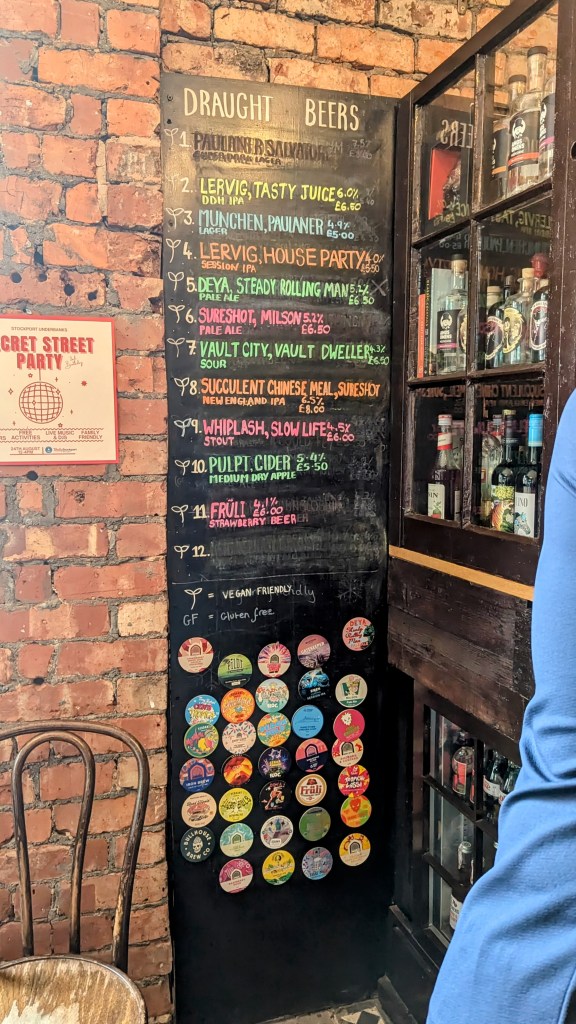 DRAUGHT BEERS
1. PAULANER SALVATOR 7.5%
2. LERVIG, TASTY JUICE 6.0%
DDH IPA £6.50
3. MUNCHEN, PAULANER 4.9%
LAGER £5.00
4. LERVIG, HOUSE PARTY 4.0%
SESSION IPA £5.50
5. DEYA, STEADY ROLLING MAN 5.2%
PALE ALE £6.50
6. SURESHOT, MILSON 5.2%
PALE ALE £6.50
7. VAULT CITY, VAULT DWELLER 4.3%
SOUR £6.50
8. SUCCULENT CHINESE MEAL, SURESHOT
NEW ENGLAND IPA 6.5%
£8.00
9. WHIPLASH, SLOW LIFE 4.5%
STOUT £6.00
10. PULPT. CIDER 5.4%
MEDIUM DRY APPLE £5.50
11. FRÜLI 4.1%
STRAWBERRY BEER £6.00
12.
= VEGAN FRIENDLY
GF = Gluten free
STOCKPORT UNDERBANKS
CRET STREET
PARTY
FREE ACTIVITIES
LIVE MUSIC & DJS
FAMILY FRIENDLY
24TH AUGUST
DEYA
Steady
Rolling
Man
Früli
BULLHOUSE
BREW CO